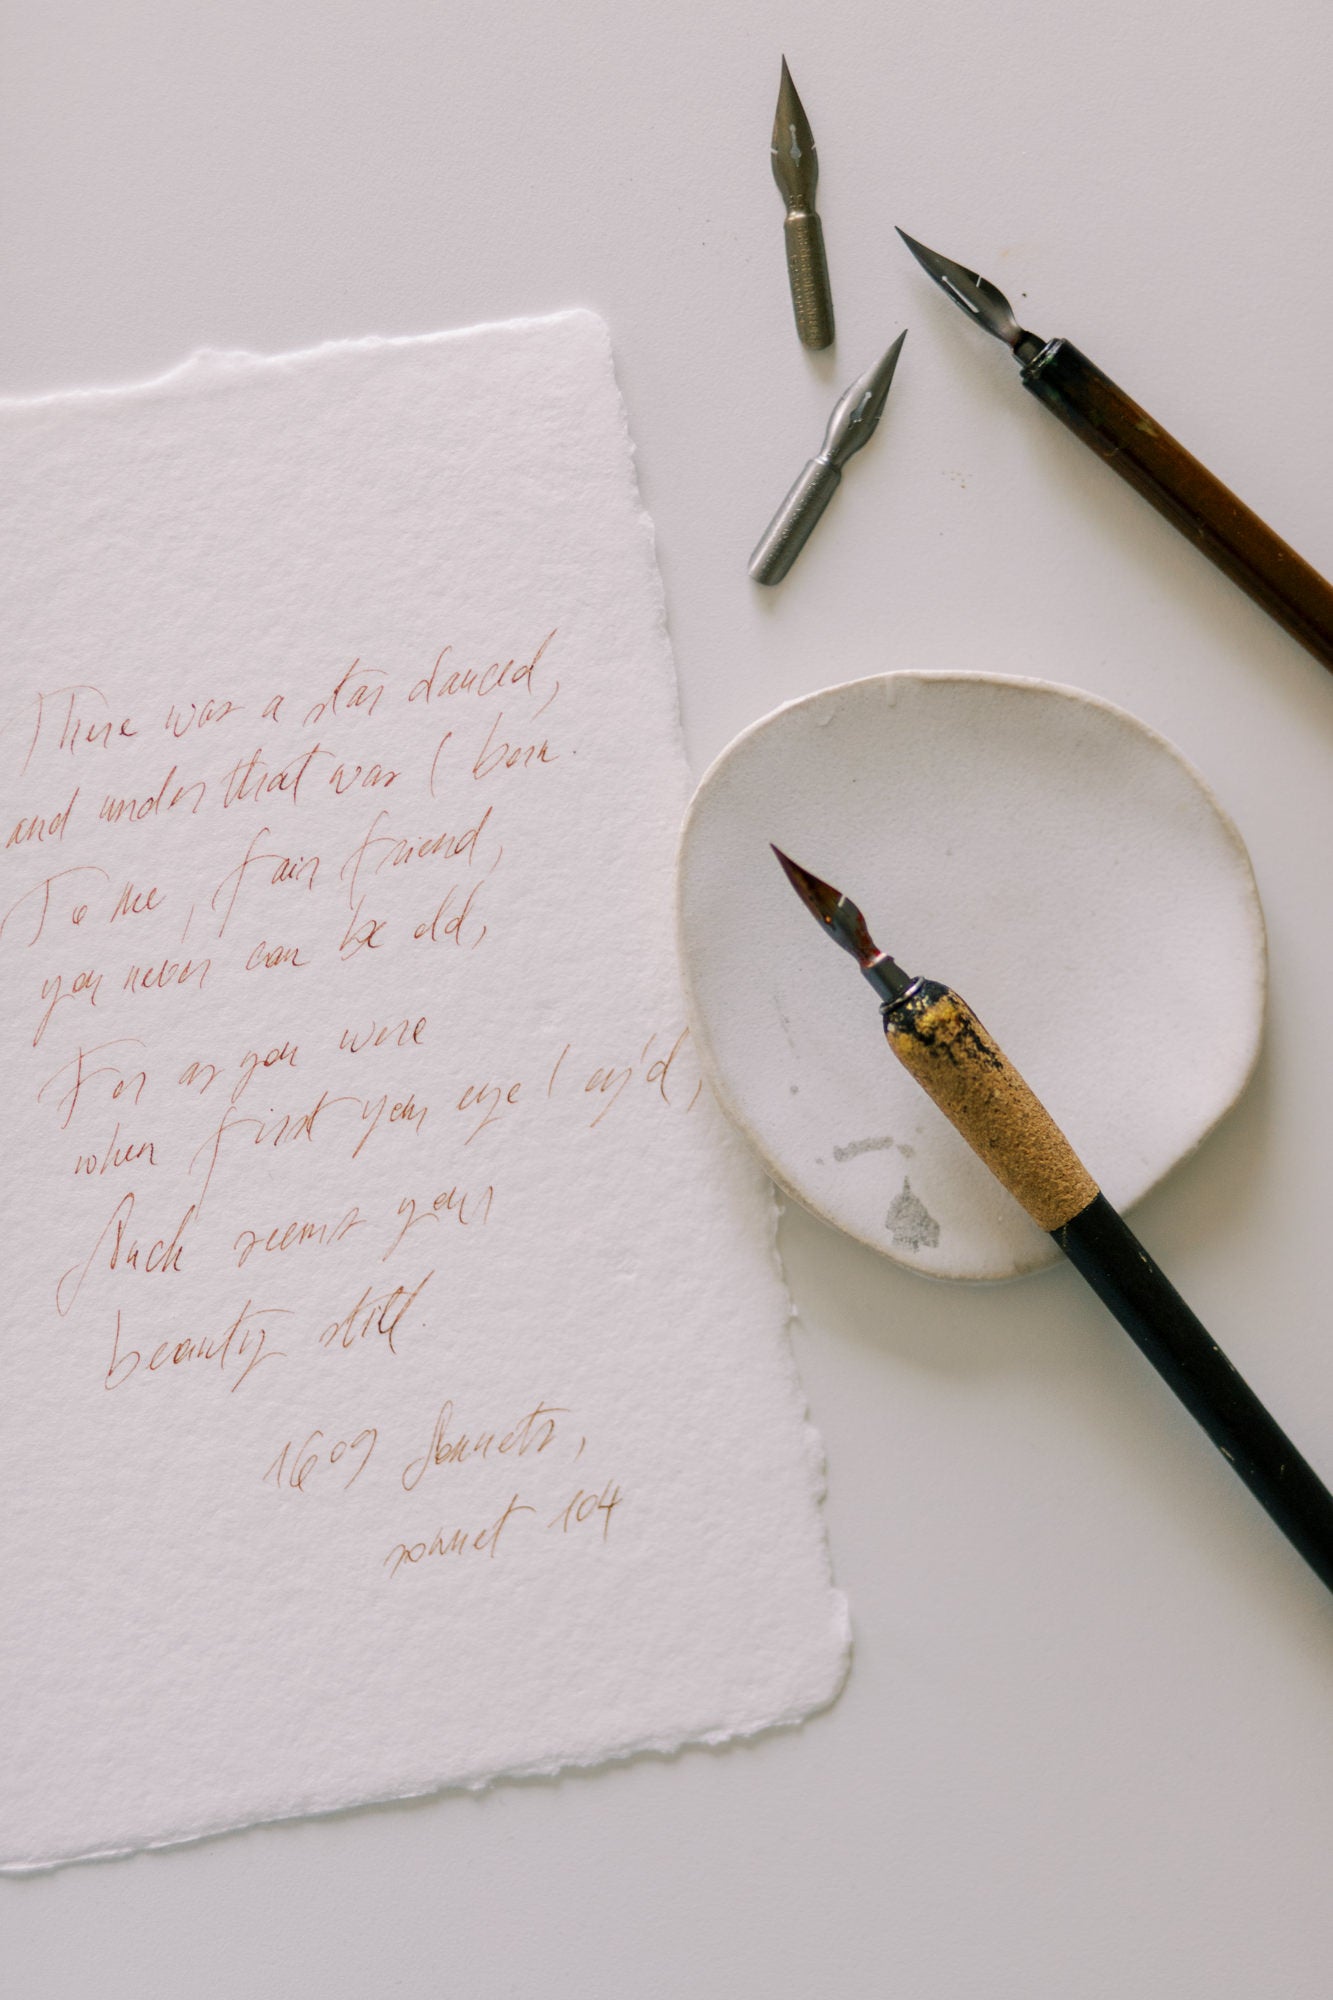 There was a star danced,
and under that was I born.
To me, fair friend,
you never can be old,
For as you were
when first your eye I ey'd,
Such seems your
beauty still.
1609 Sonnets,
sonnet 104